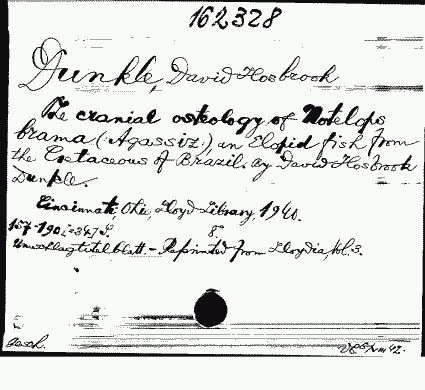 162328
Dunkle, David Hosbrook
The cranial osteology of Notelops
brama (Agassiz.) an Elopid fish from
the Cretaceous of Brazil. By David Hosbrook
Dunkle.
Cincinnati Ohio, Lloyd Library, 1940.
157-190 [=34] S. 8.
Umschlagtitelblatt - Reprinted from Lloydia, Vol. 3.